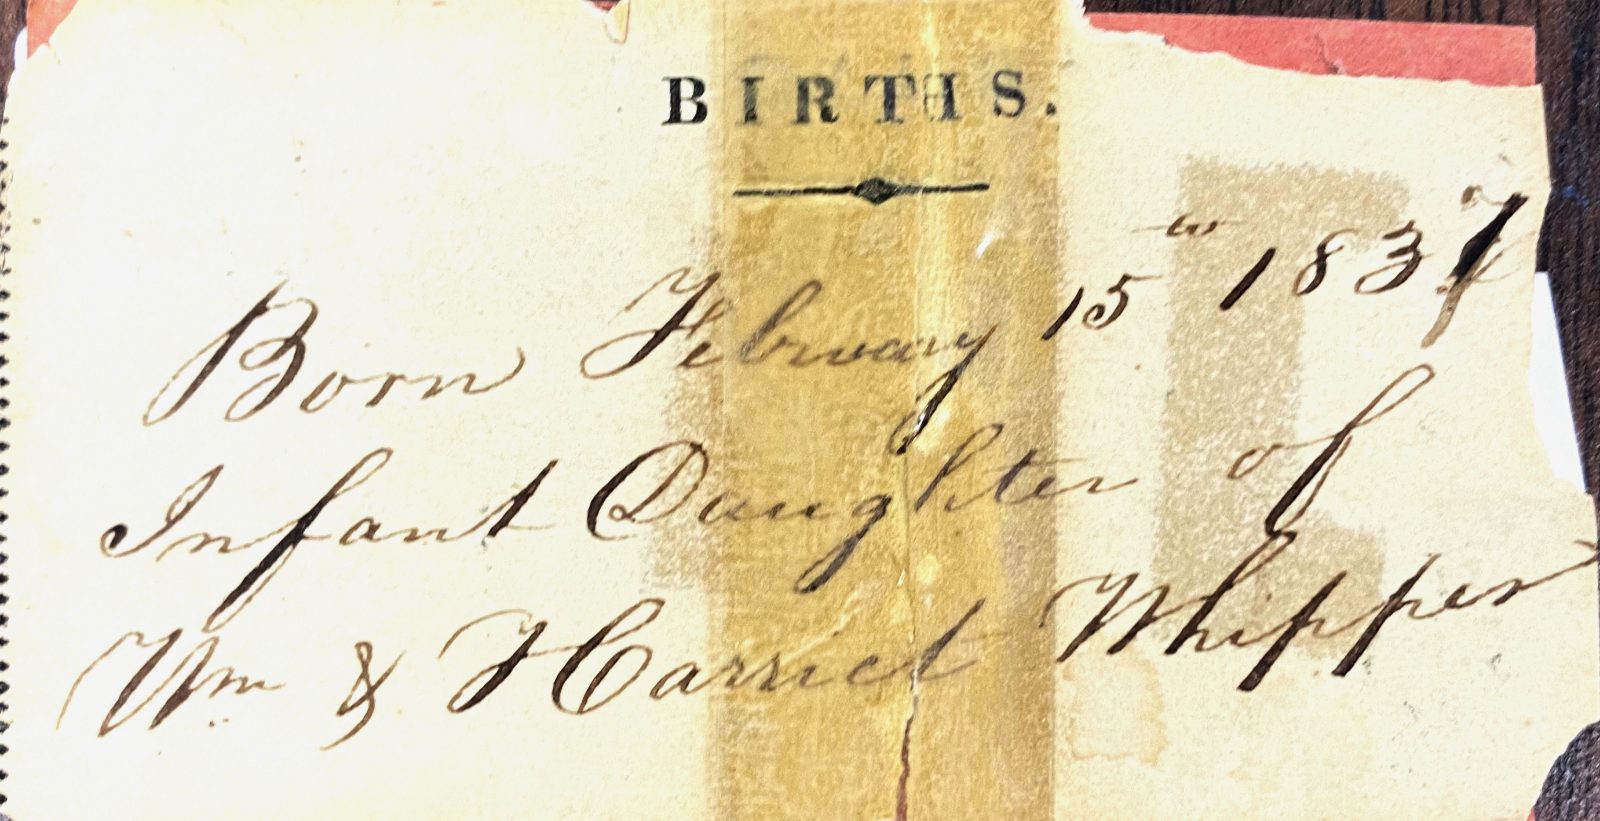 BIRTHS.
Born February 15th 1837
Infant Daughter of
Wm & Harriet Whipper